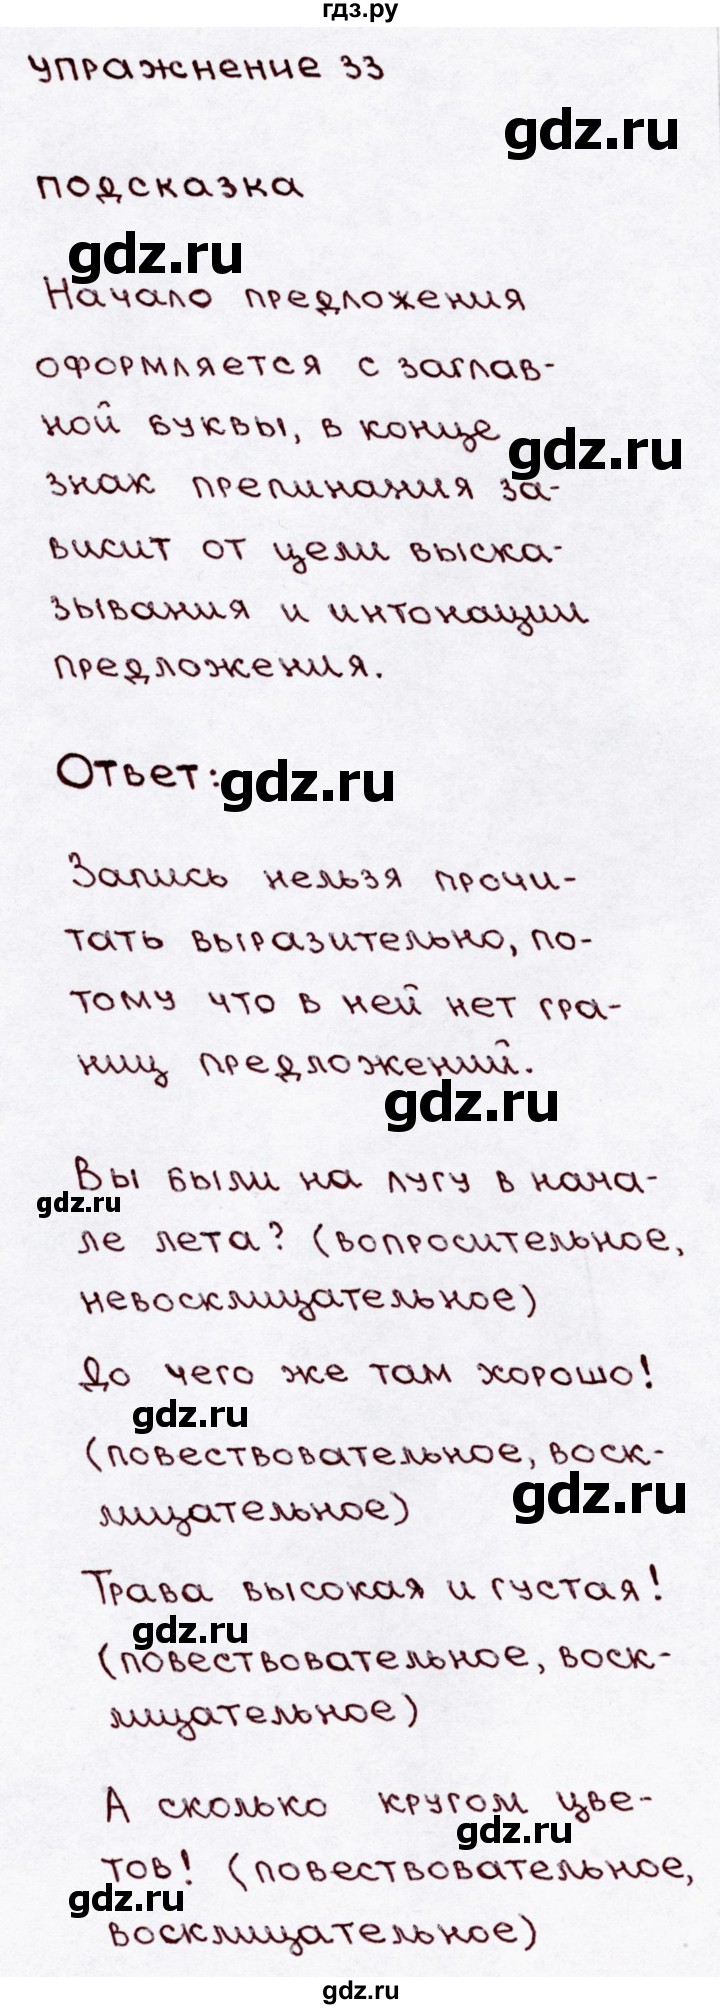 гдз.ру
упражнение 33
gdz.ru
подсказка
gdz.ru
Начало предложения
оформляется с заглав-
ной буквы, в конце
gdz.ru
знак препинания за-
висит от цели выска-
зывания и интонации
предложения.
Ответ:
gdz.ru
Запись нельзя прочи-
тать выразительно, по-
тому что в ней нет гра-
ниц предложений.
gdz.ru
Вы были на лугу в нача-
gdz.ru
ле лета? (вопросительное,
невосклицательное)
До чего же там хорошо!
gdz.ru
(повествовательное, воск-
gdz.ru
лицательное)
Трава высокая и густая!
gdz.ru
(повествовательное, воск-
лицательное)
А сколько кругом цве-
gdz.ru
тов! (повествовательное,
gdz.ru
восклицательное)
gdz.ru